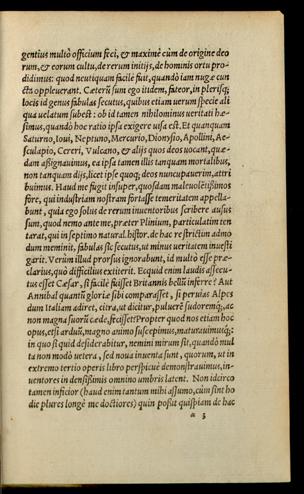 gentius multò officium feci, & maximè cùm de origine deo
rum, & eorum cultu, de rerum initijs, de hominis ortu pro
didimus: quod neutiquam facilè fuit, quandò iam nugæ cun
cta oppleuerant. Cæterũ sum ego itidem, fateor, in plerisq́;
locis id genus fabulas secutus, quibus etiam uerum specie ali
qua uelatum subest: ob id tamen nihilominus ueritati hæ-
simus, quandò hoc ratio ipsa exigere uisa est. Et quanquam
Saturno, Ioui, Neptuno, Mercurio, Dionysio, Apollini, Ae-
sculapio, Cereri, Vulcano, & alijs quos deos uocant, quæ-
dam aßignauimus, ea ipsa tamen illis tanquam mortalibus,
non tanquam dijs, licet ipse quoq; deos nuncupauerim, attri
buimus. Haud me fugit insuper, quosdam maleuolẽtißimos
fore, qui industriam nostram fortaße temeritatem appella-
bunt, quia ego solus de rerum inuentoribus scribere ausus
sum, quod nemo ante me, præter Plinium, particulatim ten
tarat, qui in septimo natural. histor. de hac re strictim admo
dum meminit, fabulas sic secutus, ut minus ueritatem inuesti
garit. Verùm illud prorsus ignorabunt, id multò esse præ-
clarius, quò difficilius extiterit. Ecquid enim laudis assecu-
tus esset Cæsar, si facilè fuißet Britannis bellũ inferre? Aut
Annibal quantũ gloriæ sibi comparasset, si peruias Alpes
dum Italiam adiret, citra, ut dicitur, puluerẽ sudoremq́;, ac
non magna suorũ cæde, fecißet? Propter quod nos etiam hoc
opus, etsi arduũ, magno animo suscepimus, maturauimusq́;:
in quo si quid desiderabitur, nemini mirum sit, quandò mul
ta non modò uetera, sed noua inuenta sunt, quorum, ut in
extremo tertio operis libro perspicuè demonstrauimus, in-
uentores in densißimis omnino umbris latent. Non idcirco
tamen inficior (haud enim tantum mihi assumo, cùm sint ho
die plures longè me doctiores) quin poßit quispiam de hac
a 3